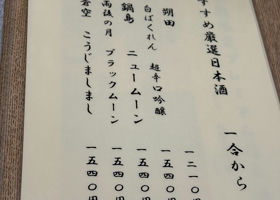 すすめ厳選日本酒
一合から
朔田
一二一〇円
白ばくれん 超辛口吟醸
一五四〇円
鍋島 ニュームーン
一五四〇円
雨後の月 ブラックムーン
一五四〇円
蒼空 こうじましまし
一五四〇円